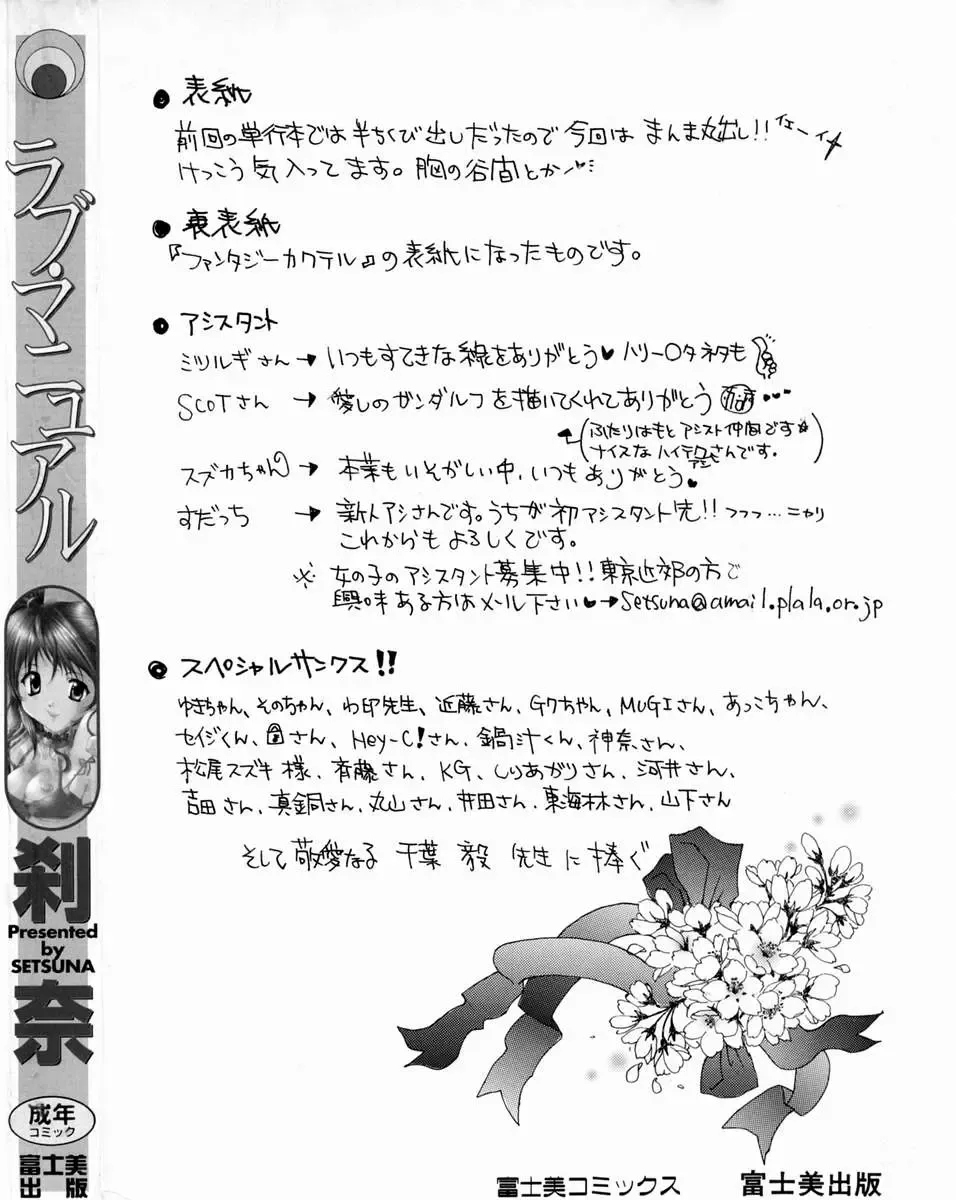 ラブ・マニュアル
刹奈
Presented
by
SETSUNA
成年
コミック
富士美
出版
● 表紙
前回の単行本では半ちくび出しだったので今回は まんま丸出し!! イエーイ
けっこう気入ってます。胸の谷間とか
● 裏表紙
『ファンタジーカクテル』の表紙になったものです。
● アシスタント
ミツルギさん → いつもすてきな線をありがとう♥ ハリー〇タネタも
SCOTさん → 愛しのガンダルフを描いてくれてありがとう
(ふたりはもとアシスト仲間です☆
ナイスなハイテクアシさんです。)
スズカちゃん → 本業もいそがしい中、いつもありがとう♥
すだっち → 新人アシさんです。うちが初アシスタント先!! フフフ…ニヤリ
これからもよろしくです。
※ 女の子のアシスタント募集中!! 東京近郊の方で
興味ある方はメール下さい♥→setsuna@amail.plala.or.jp
● スペシャルサンクス!!
ゆきちゃん、そのちゃん、わ印先生、近藤さん、Gクちゃん、MUGIさん、あっこちゃん、
セイジくん、さん、Hey-C!さん、鍋汁くん、神奈さん、
松尾スズキ様、斉藤さん、KG、しりあがりさん、河井さん、
吉田さん、真鍋さん、丸山さん、井田さん、東海林さん、山下さん
そして敬愛なる 千葉 毅 先生に捧ぐ
富士美コミックス 富士美出版